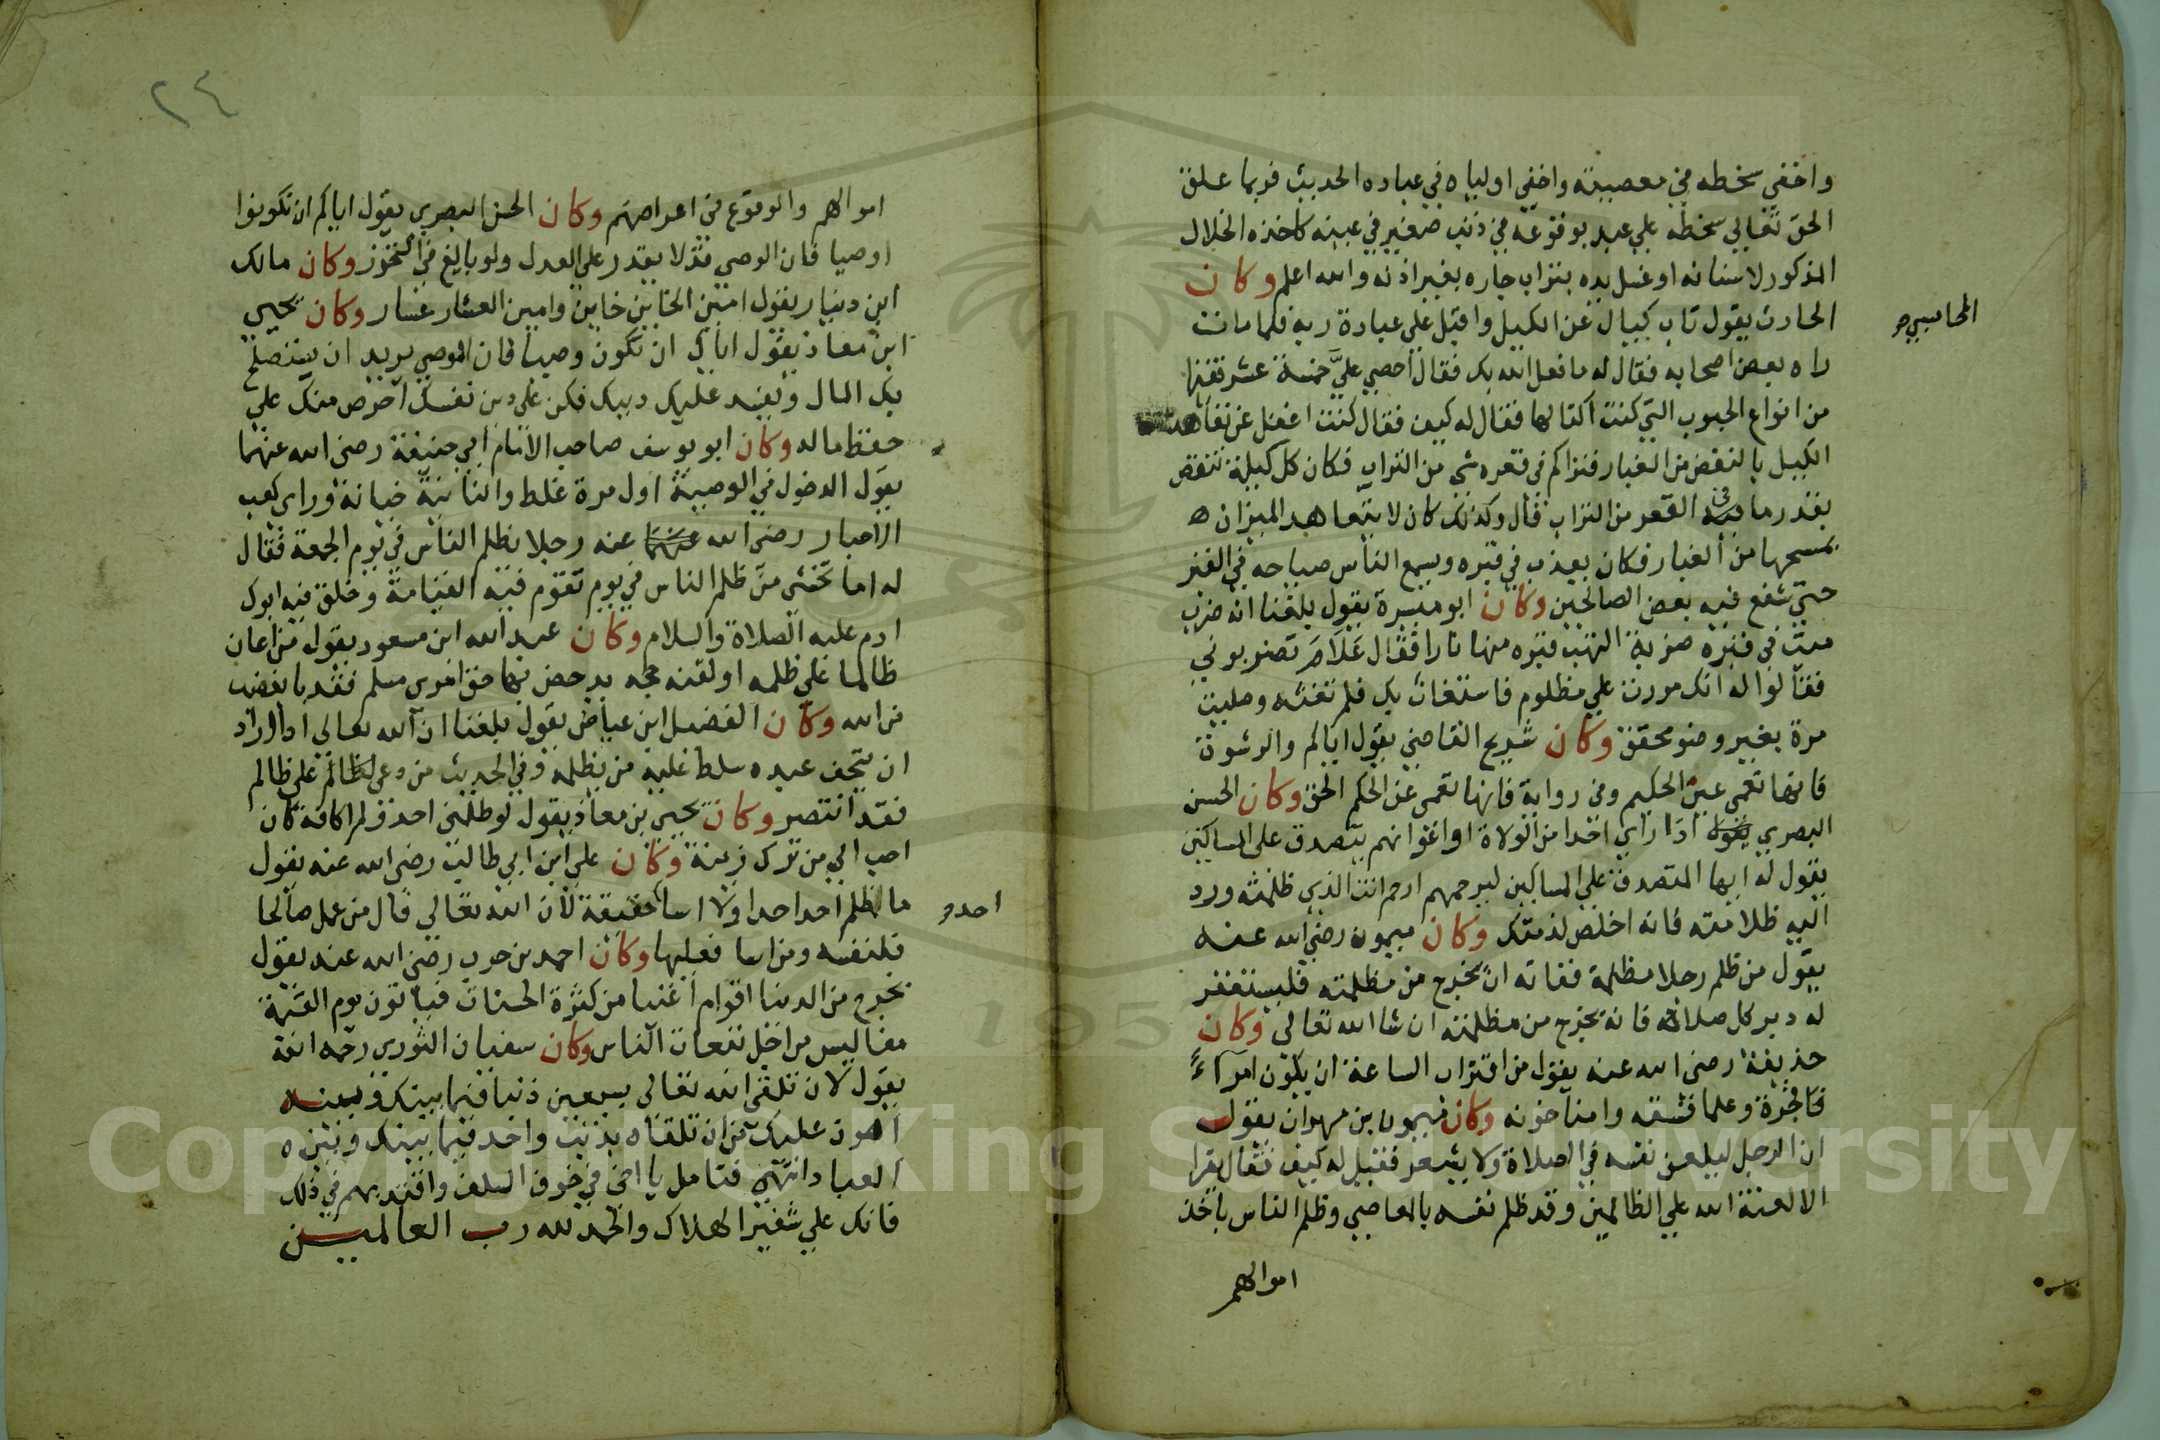 واخفي سخطه في معصيته واخفي اولياه في عباده الحديث فربما علق
الحق تعالي سخطه علي عبد بوقوعه في ذنب صغير في عينه كاخذه الخلال
المذكور لاسنانه او غسل يده بتراب جاره بغير اذنه والله اعلم وكان
الحارث يقول تاب كيال عن الكيل واقبل علي عبادة ربه فلما مات
المحاسبي
راه بعض اصحابه فقال له ما فعل الله بك فقال احصي عليَّ خمسة عشر قفيزا
من انواع الحبوب التي كنت اكتالها فقال له كيف فقال كنت اغفل عن تفاهد
الكيل بالنفض من الغبار فتراكم في قعره شي من التراب فكان كل كيلة تنقص
بقدر ما في القعر من التراب قال وكذلك كان لا يتعاهد الميزان
يمسحها من الغبار فكان يعذب في قبره ويسمع الناس صياحه في القبر
حتي شفع فيه بعض الصالحين وكان ابو ميسرة يقول بلغنا انه ضرب
ميت في قبره ضربة التهب قبره منها نارا فقال عَلَامَ تضربوني
فقالوا له انك مررت علي مظلوم فاستغاث بك فلم تغثه وصليت
مرة بغير وضو محقق وكان شريح القاضي يقول اياكم والرشوة
فانها تعمي عين الحكيم وفي رواية فانها تعمي عن الحكم الحق وكان الحسن
البصري يقول اذا راي احدا من الولاة او اعوانهم يتصدق على المساكين
يقول له ايها المتصدق علي المساكين ليرحمهم ارحم انت الذي ظلمته ورد
اليه ظلامته فانه اخلص لذمتك وكان ميمون رضي الله عنه
يقول من ظلم رجلا مظلمة ففاته ان يخرج من مظلمته فليستغفر
له دبر كل صلاته فانه يخرج من مظلمته ان شا الله تعالى وكان
حذيفة رضي الله عنه يقول من اقتراب الساعة ان يكون امراءً
فاجرة وعلما فسقه وامنا خونه وكان ميمون بن مهران يقول
ان الرجل ليلعن نفسه في الصلاة ولا يشعر فقيل له كيف فقال يقرا
الا لعنة الله علي الظالمين وقد ظلم نفسه بالمعاصي وظلم الناس باخذ
اموالهم
٢٤
اموالهم والوقوع في اعراضهم وكان الحسن البصري يقول اياكم ان تكونوا
اوصيا فان الوصي قد لا يقدر علي العدل ولو بالغ في التحرز وكان مالك
ابن دينار يقول امين الخاين خاين وامين العشار عشار وكان يحيي
ابن معاذ يقول اياك ان تكون وصيا فان الموصي يريد ان يستصلح
بك المال ويفسد عليك دينك فكن علي دين نفسك احرص منك علي
حفظ ماله وكان ابو يوسف صاحب الامام ابي حنيفة رضي الله عنهما
يقول الدخول في الوصية اول مرة غلط والثانية خيانة وراي كعب
الاحبار رضي الله عنهما عنه رجلا يظلم الناس في يوم الجمعة فقال
له اما تخشي من ظلم الناس في يوم تقوم فيه القيامة وخلق فيه ابوك
ادم عليه الصلاة والسلام وكان عبد الله ابن مسعود يقول من اعان
ظالما علي ظلمه او لقنه حجه يدحض بها حق امرى مسلم فقد با بغضب
من الله وكان الفضيل ابن عياض يقول بلغنا ان الله تعالي اذا اراد
ان يتحف عبده سلط عليه من يظلمه وفي الحديث من دعي لظالم علي ظالم
فقد انتصر وكان يحيي بن معاذ يقول لو ظلمني احد ولم اكافه كان
احب الي من ترك زينة وكان علي ابن ابي طالب رضي الله عنه يقول
ما ظلم احد احدا ولا اسا حقيقة لان الله تعالي قال من عمل صالحا
احد
فلنفسه ومن اسا فعليها وكان احمد بن حرب رضي الله عنه يقول
يخرج من الدنيا اقوام اغنيا من كثرة الحسنات فياتون يوم القيمة
مفاليس من اجل تبعات الناس وكان سفيان الثوري رحمه الله
يقول لان تلقي الله تعالي بسبعين ذنبا فيما بينك وبينه
اهون عليك من ان تلقاه بذنب واحد فيما بينك وبين
العباد انتهى فتامل يا اخي في خوف السلف واقتد بهم في ذلك
فانك علي شفير الهلاك والحمد لله رب العالمين
Copyright © King Saud University
195